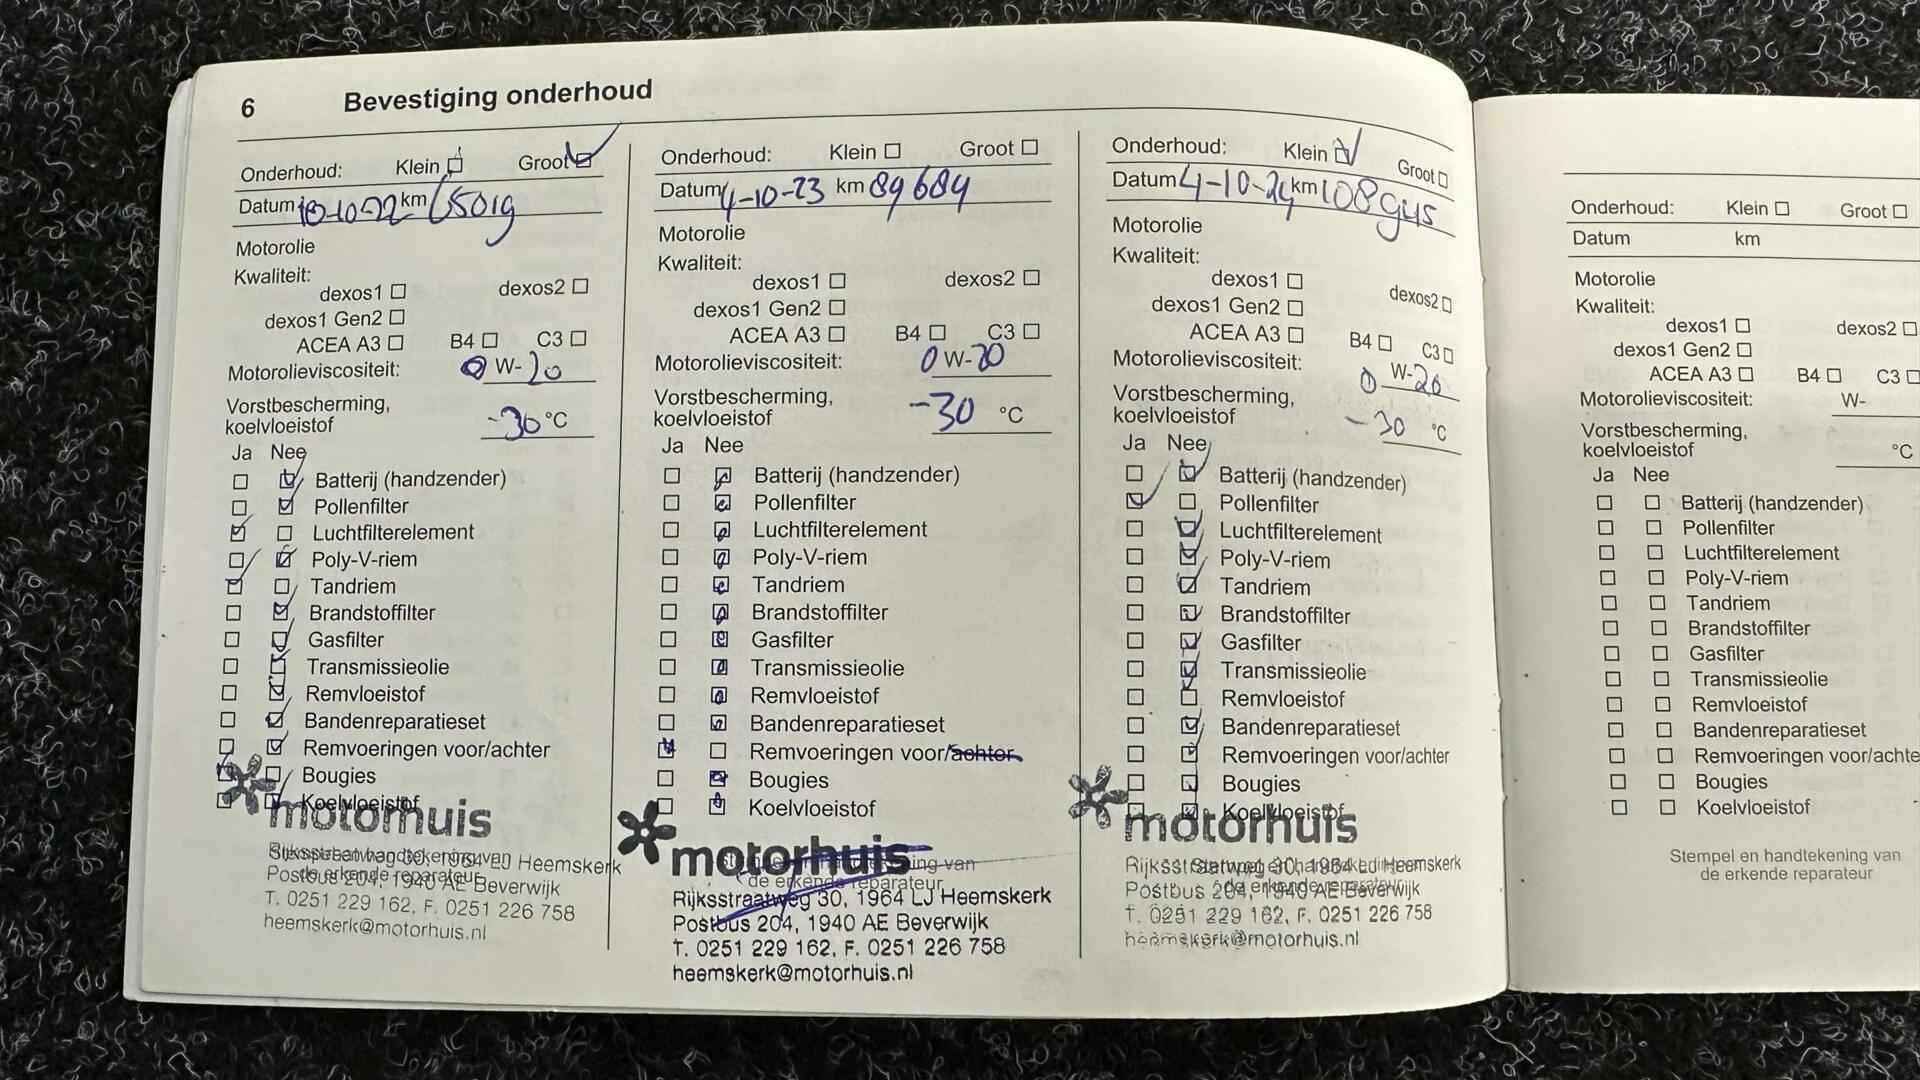 6 Bevestiging onderhoud
Onderhoud: Klein Groot
Datum 18-10-22 km 65019
Motorolie
Kwaliteit:
dexos1 dexos2
dexos1 Gen2
ACEA A3 B4 C3
Motorolieviscositeit: 0 W-20
Vorstbescherming,
koelvloeistof -30 °C
Ja Nee
Batterij (handzender)
Pollenfilter
Luchtfilterelement
Poly-V-riem
Tandriem
Brandstoffilter
Gasfilter
Transmissieolie
Remvloeistof
Bandenreparatieset
Remvoeringen voor/achter
Bougies
Koelvloeistof
motorhuis
Rijksstraatweg 30, 1964 LJ Heemskerk
Postbus 204, 1940 AE Beverwijk
T. 0251 229 162, F. 0251 226 758
heemskerk@motorhuis.nl
Onderhoud: Klein Groot
Datum 4-10-23 km 89689
Motorolie
Kwaliteit:
dexos1 dexos2
dexos1 Gen2
ACEA A3 B4 C3
Motorolieviscositeit: 0 W-20
Vorstbescherming,
koelvloeistof -30 °C
Ja Nee
Batterij (handzender)
Pollenfilter
Luchtfilterelement
Poly-V-riem
Tandriem
Brandstoffilter
Gasfilter
Transmissieolie
Remvloeistof
Bandenreparatieset
Remvoeringen voor/achter
Bougies
Koelvloeistof
motorhuis
Stempel en handtekening van
de erkende reparateur
Rijksstraatweg 30, 1964 LJ Heemskerk
Postbus 204, 1940 AE Beverwijk
T. 0251 229 162, F. 0251 226 758
heemskerk@motorhuis.nl
Onderhoud: Klein Groot
Datum 4-10-24 km 108945
Motorolie
Kwaliteit:
dexos1 dexos2
dexos1 Gen2
ACEA A3 B4 C3
Motorolieviscositeit: 0 W-20
Vorstbescherming,
koelvloeistof -30 °C
Ja Nee
Batterij (handzender)
Pollenfilter
Luchtfilterelement
Poly-V-riem
Tandriem
Brandstoffilter
Gasfilter
Transmissieolie
Remvloeistof
Bandenreparatieset
Remvoeringen voor/achter
Bougies
Koelvloeistof
motorhuis
Rijksstraatweg 30, 1964 LJ Heemskerk
Postbus 204, 1940 AE Beverwijk
T. 0251 229 162, F. 0251 226 758
heemskerk@motorhuis.nl
Onderhoud: Klein Groot
Datum km
Motorolie
Kwaliteit:
dexos1 dexos2
dexos1 Gen2
ACEA A3 B4 C3
Motorolieviscositeit: W-
Vorstbescherming,
koelvloeistof °C
Ja Nee
Batterij (handzender)
Pollenfilter
Luchtfilterelement
Poly-V-riem
Tandriem
Brandstoffilter
Gasfilter
Transmissieolie
Remvloeistof
Bandenreparatieset
Remvoeringen voor/achte
Bougies
Koelvloeistof
Stempel en handtekening van
de erkende reparateur